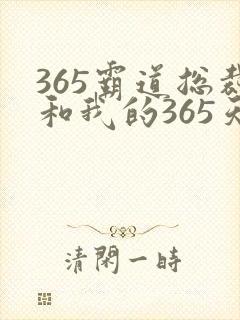 365霸道总裁
和我的365天
清閑一時